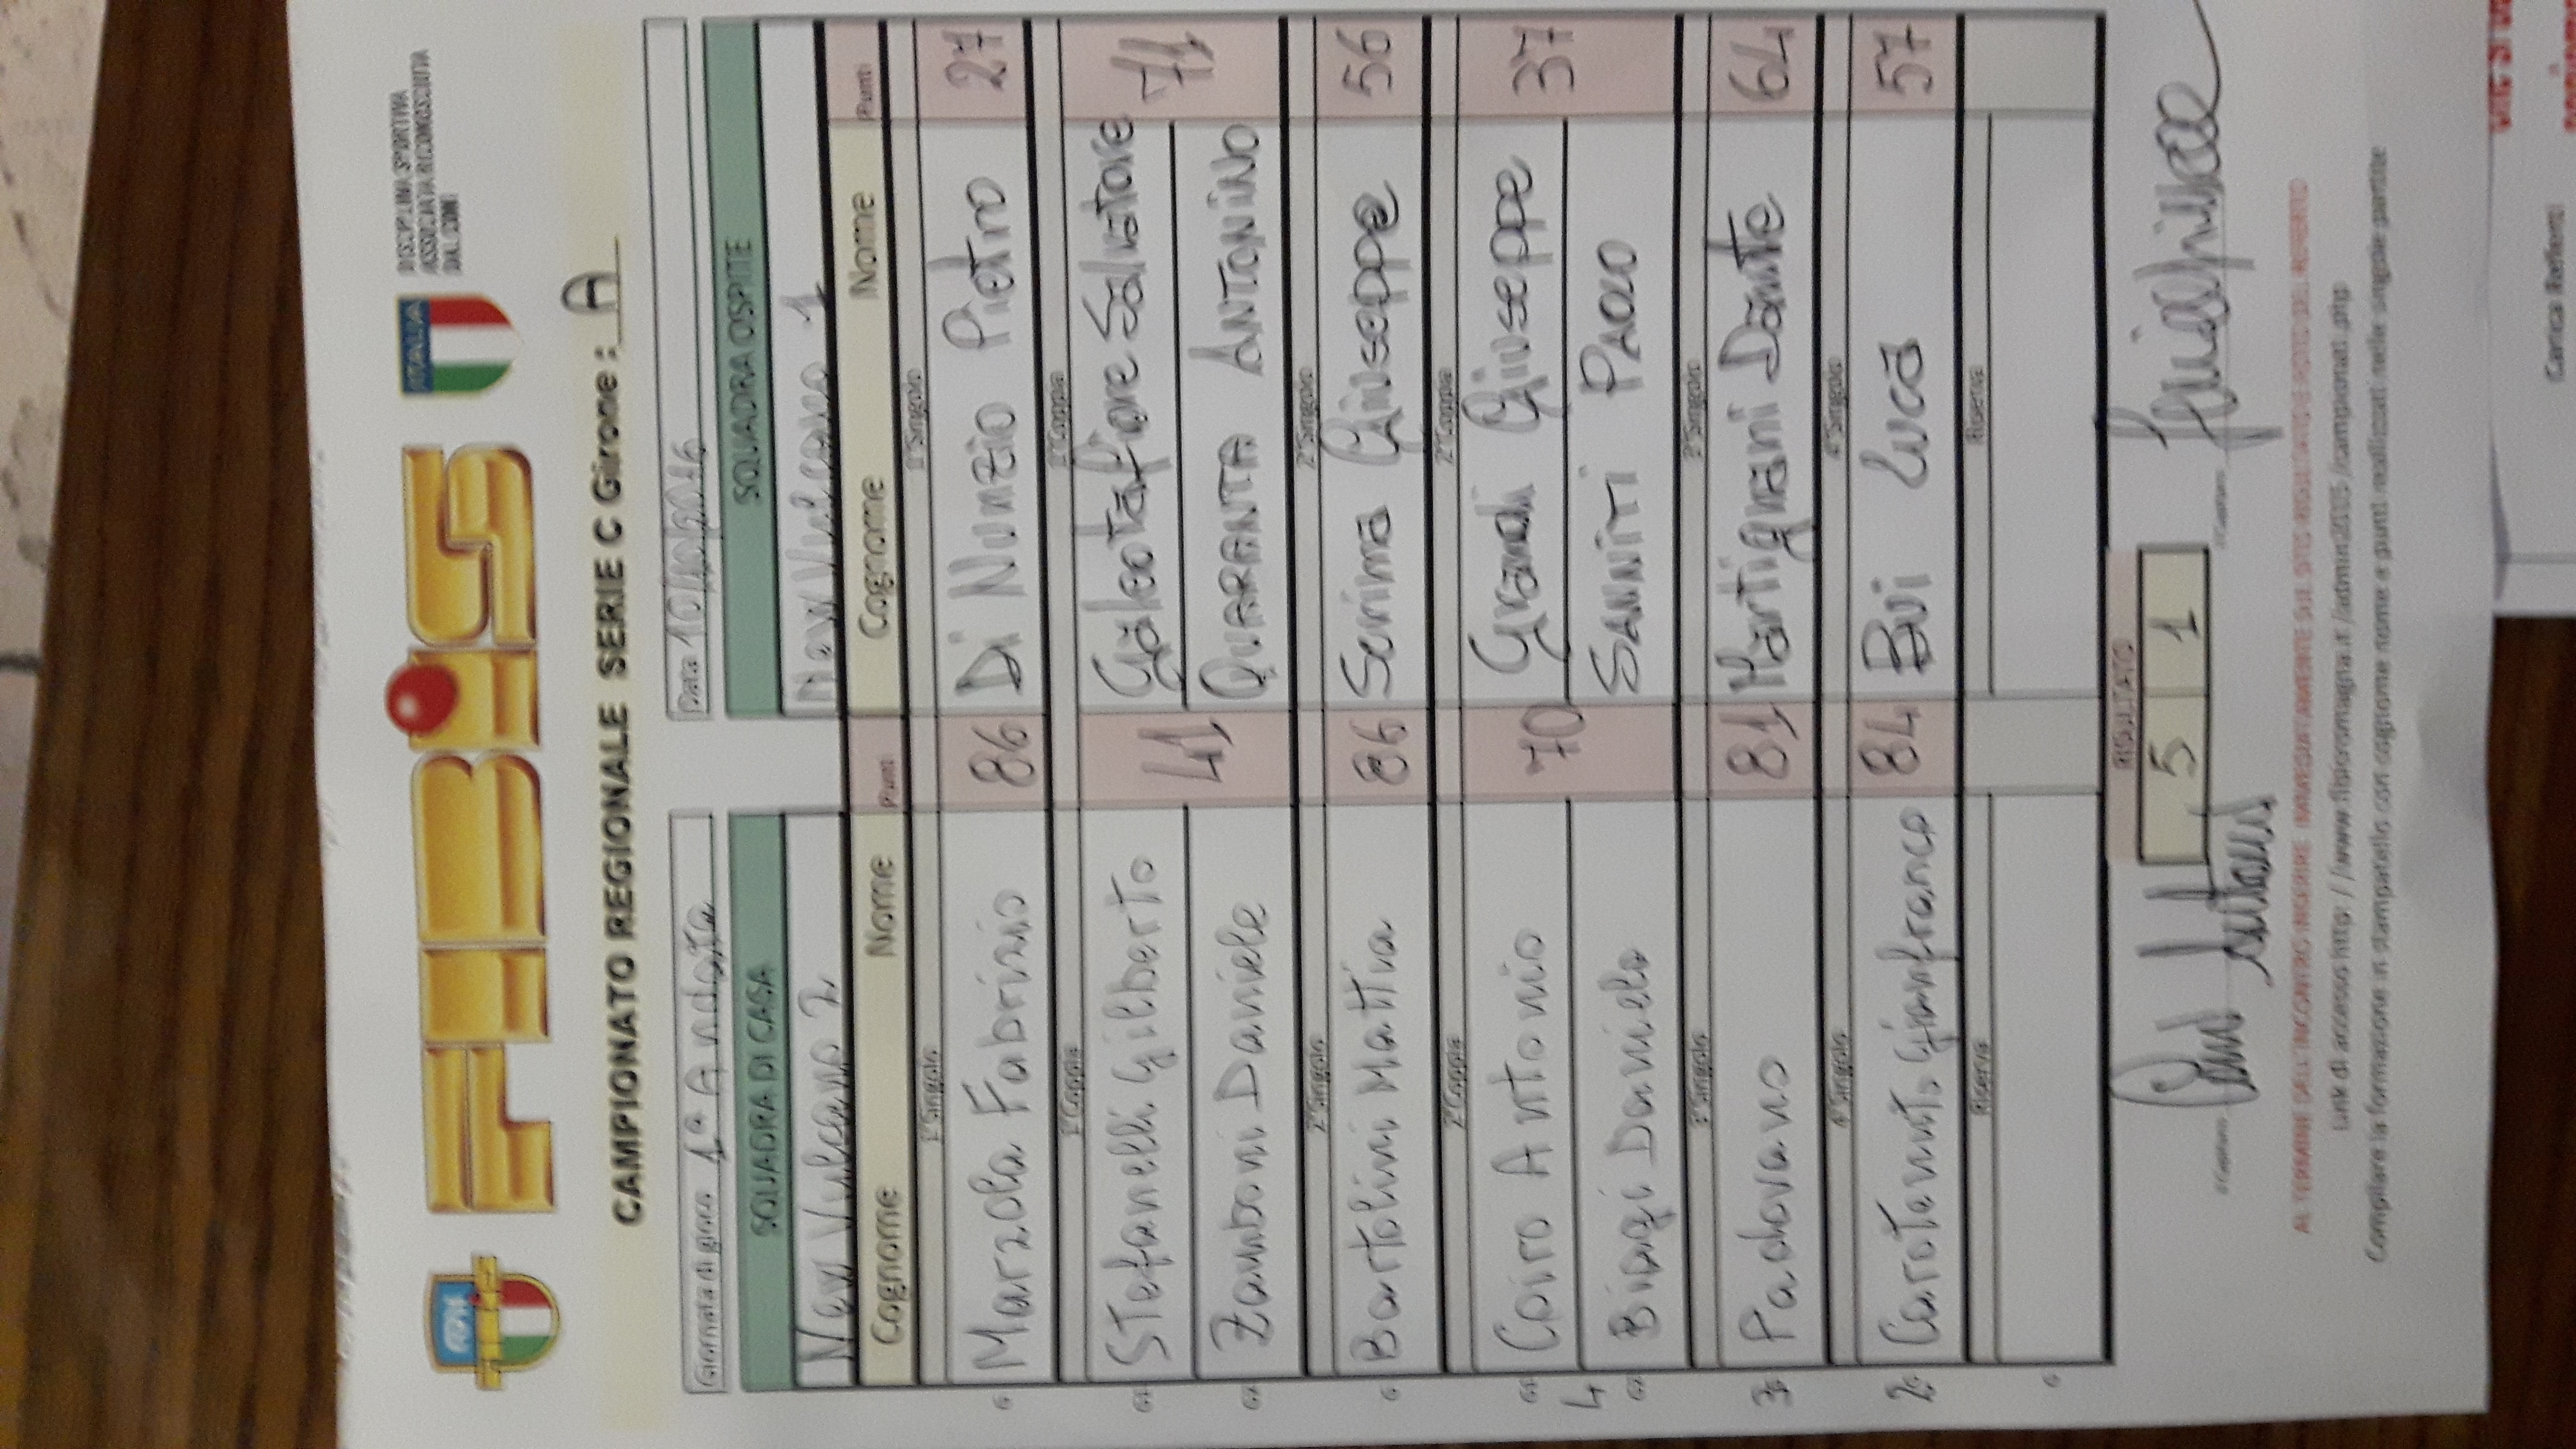 FIBiS
ITALIA
DISCIPLINA SPORTIVA
ASSOCIATA RICONOSCIUTA
DAL CONI
CAMPIONATO REGIONALE SERIE C Girone : A
Giornata di gioco 1ª Andata Data 10/10/2016
SQUADRA DI CASA SQUADRA OSPITE
New Vulcano 2 New Vulcano 1
Cognome Nome Punti Cognome Nome Punti
1° Singolo 1° Singolo
Marzola Fabrizio 86 Di Nunzio Pietro 27
1ª Coppia 1ª Coppia
Stefanelli Gilberto 41 Galeotafiore Salvatore 71
Zamboni Daniele QUARANTA ANTONINO
2° Singolo 2° Singolo
Bartolini Mattia 86 Serima Giuseppe 56
2ª Coppia 2ª Coppia
Cairo Antonio 70 Grandi Giuseppe 37
4 Biangi Daniele SANNITI PAOLO
3° Singolo 3° Singolo
3 Padovano 81 Martignani Dante 64
4° Singolo 4° Singolo
2 Carotenuto Gianfranco 84 Bui Luca 57
Riserva Riserva
RISULTATO
5 1
Il Capitano Il Capitano
AL TERMINE DELL'INCONTRO INSERIRE IMMEDIATAMENTE SUL SITO RISULTATO E FOTO DEL REFERTO
Link di accesso http://www.fisbiromagna.it/admin2015/campionati.php
Compilare la formazione in stampatello con cognome nome e punti realizzati nelle singole partite
Carica Referti